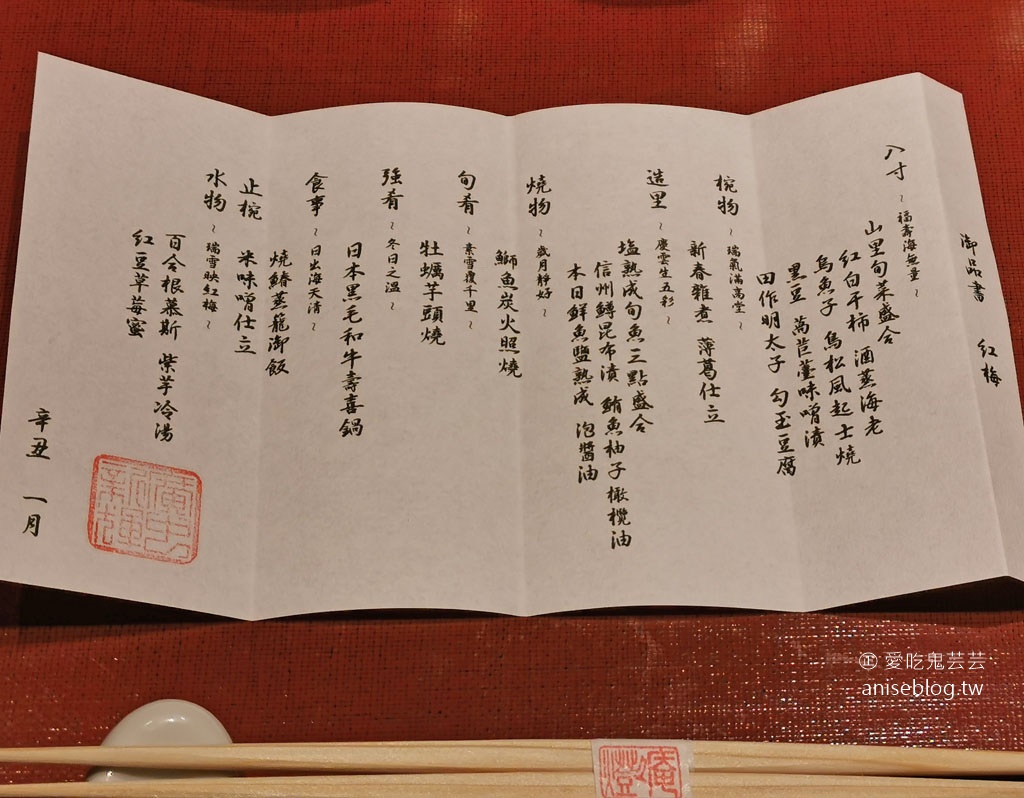 御品書 紅梅
八寸 ~福壽海無量~
山里旬菜盛合
紅白干柿 酒蒸海老
烏魚子 鳥松風起士燒
黑豆 萵苣薹味噌漬
田作明太子 勾玉豆腐
椀物 ~瑞氣滿高堂~
新春雜煮 薄葛仕立
造里 ~慶雲生五彩~
塩熟成旬魚三點盛合
信州鱒昆布漬 鮪魚柚子橄欖油
本日鮮魚鹽熟成 泡醬油
燒物 ~歲月靜好~
鰤魚炭火照燒
旬肴 ~素雪覆千里~
牡蠣芋頭燒
強肴 ~冬日之溫~
日本黑毛和牛壽喜鍋
食事 ~日出海天清~
燒鰆蒸籠御飯
止椀 米味噌仕立
水物 ~瑞雪映紅梅~
百合根慕斯 紫芋冷湯
紅豆草莓蜜
辛丑 一月
愛吃鬼芸芸
aniseblog.tw